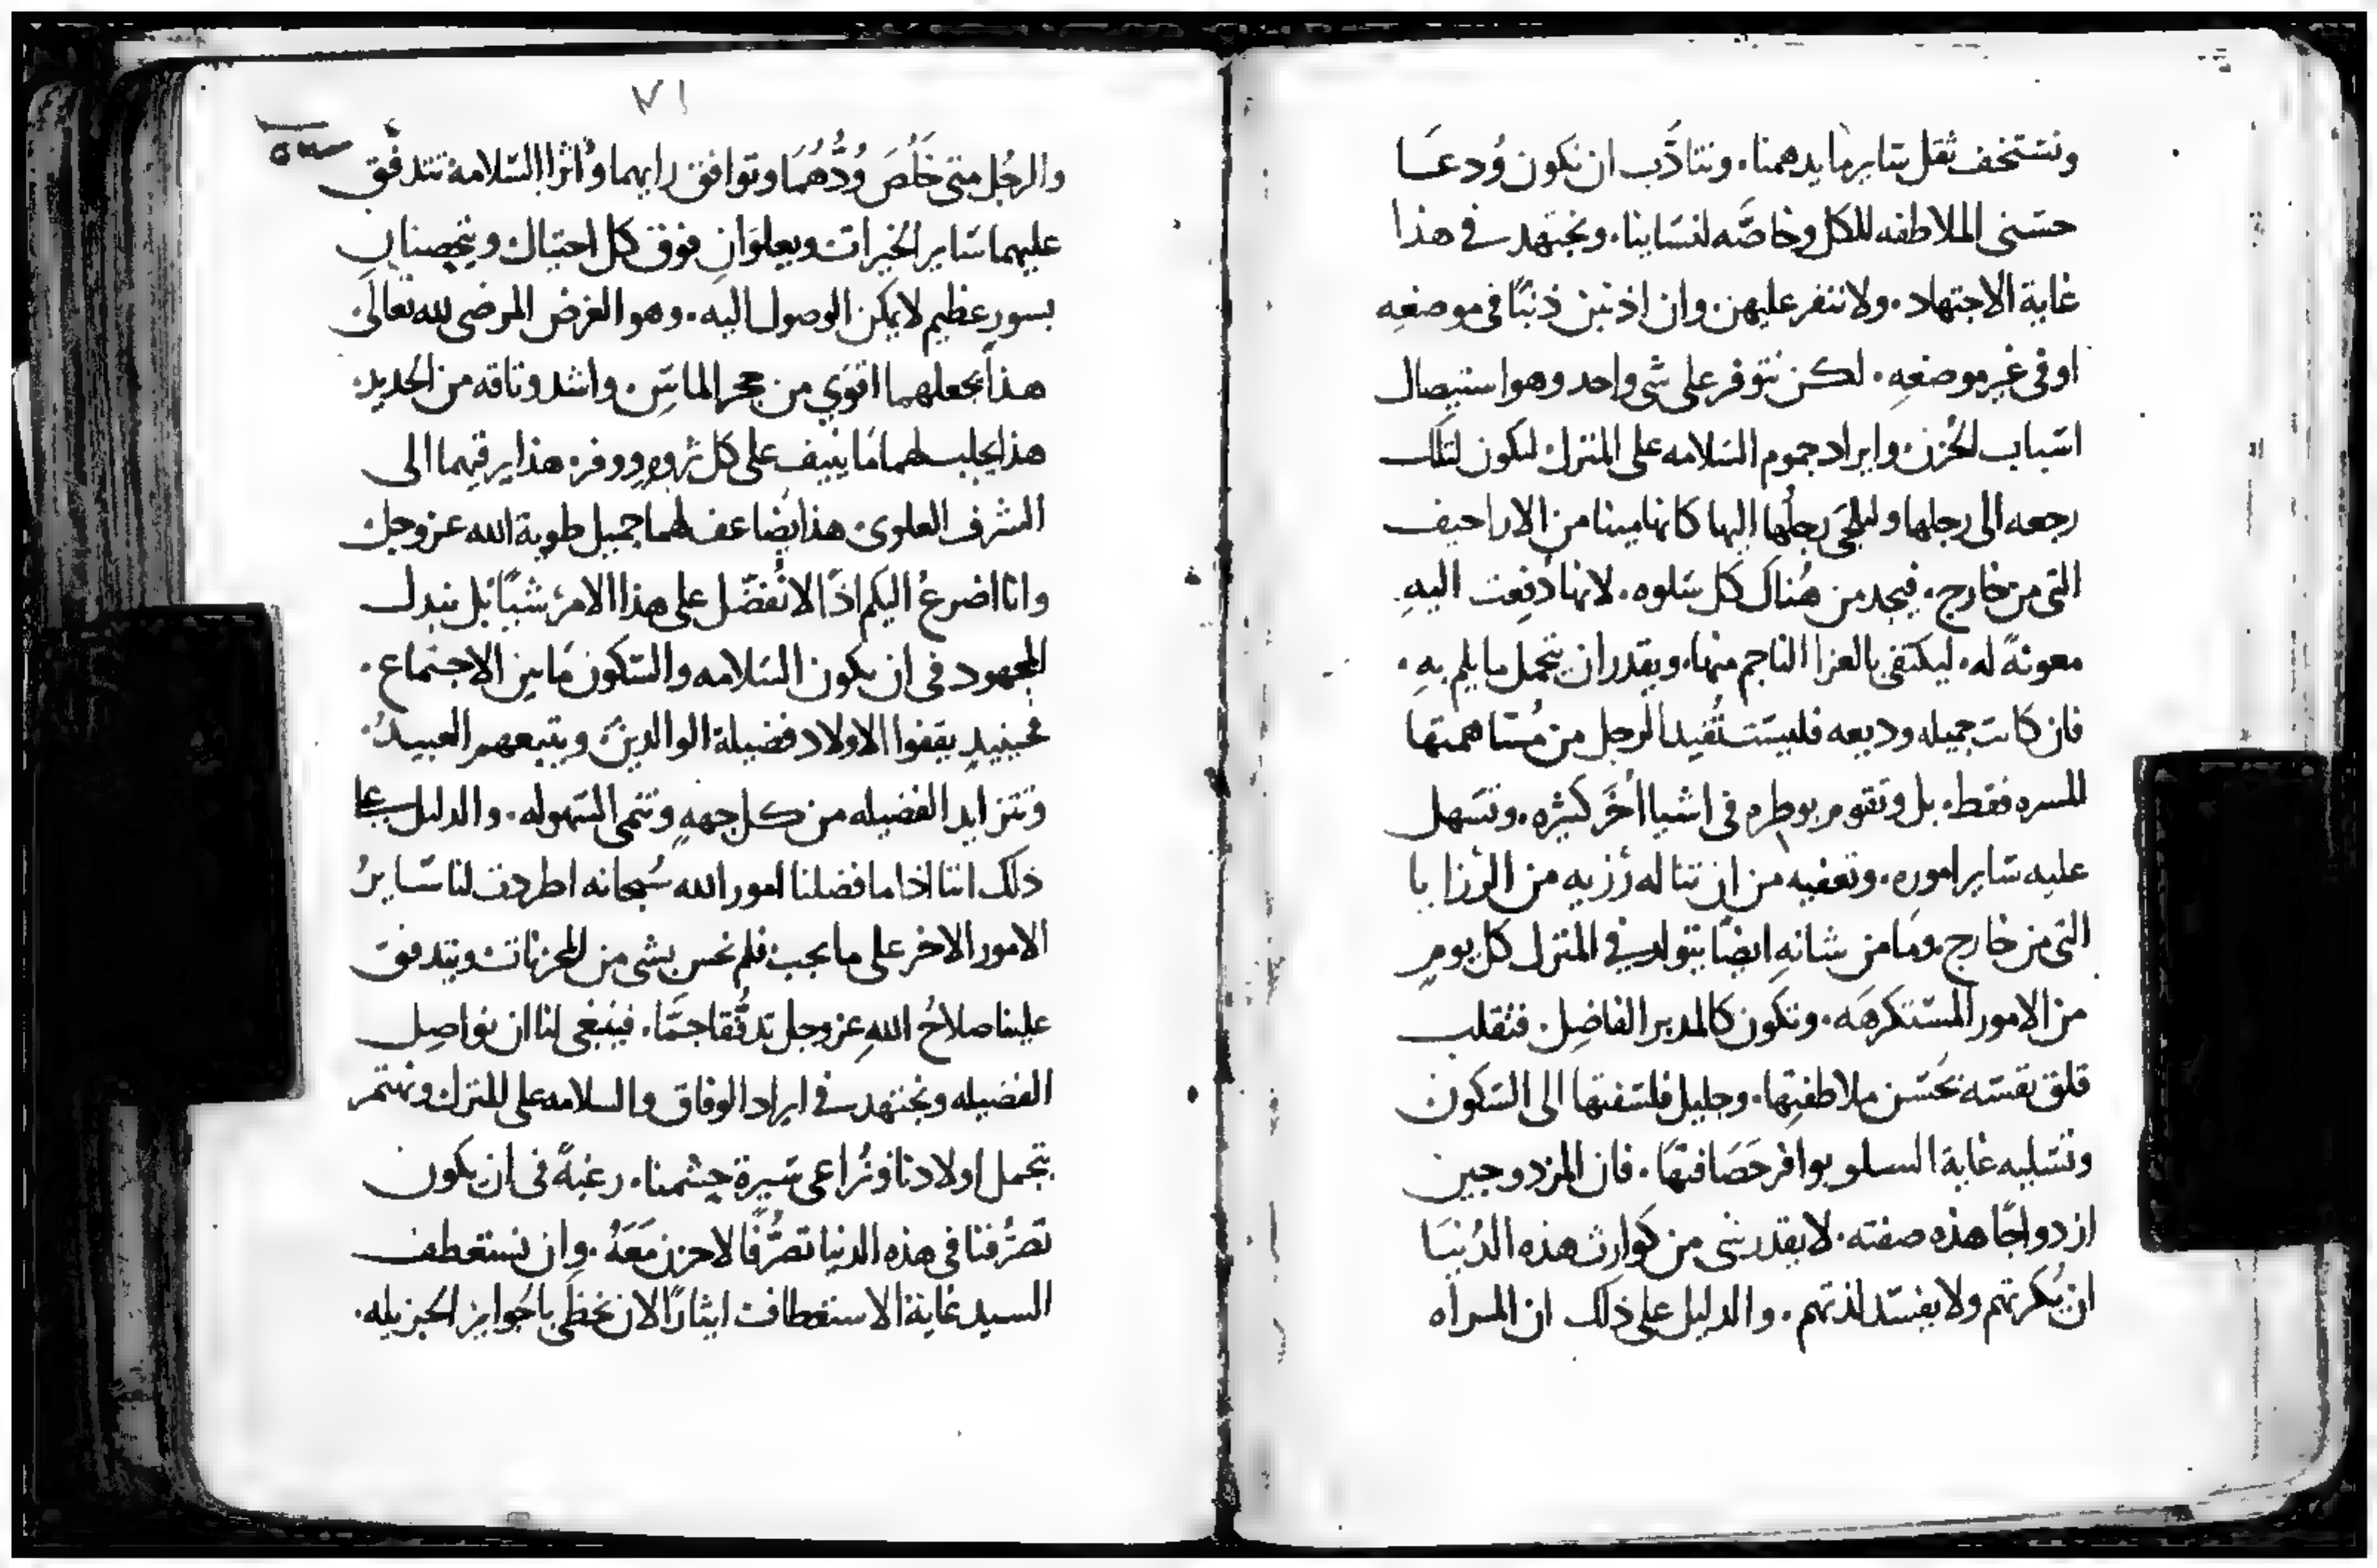 ونستخف ثقل سايرما يدهمنا. ونتادب ان نكون وُدعَا
حسنى الملاطفه للكل وخاصَّه لنسَاينا. ونجتهد في هذا
غاية الاجتهاد. ولا نتفر عليهن وان اذنبن ذنبًا فى موضعِه
او فى غير موضعِه. لكن نتوفر على شى واحد وهو استيصال
اسَباب الحُزن وايراد جموم السَلامه على المنزل لتكون لتلك
رجعه الى رجلها وليلجى رجلُها اليها كانها مينا من الاراجيف
التى من خارج. فيجد من هُناك كل سَلوه. لانها دُفِعت اليهِ
معونةً له. ليكتفى بالعزا الناجم منها، ويقدر ان يتجمل ما يلم بهِ.
فان كانت جميله وديعه فليسَت تُفيد الرجل من مُسَاهمتها
للسره فقط. بل وتقوم بوطره فى اشيا اُخَر كثيره. وتسَهل
عليه سَاير اموره. وتعفيه من ان تناله رُزيه من الرُزايا
التى من خارج. ومَا من شانهِ ايضًا يتولد في المنزل كل يومٍ
من الامور المسَتكرهَه. وتكون كالمدبر الفاضِل. فتقلب
قلق نفسَه بحُسَن ملاطفتِها. وجليل فلسَفتها الى السَكون
وتسَليه غاية السلو بوافر حَصَافتها. فان المزدوجين
ازدواجًا هذه صفته. لا يقدر شى من كوارث هذه الدُنيَا
ان يُكرثهم ولا يفسَد لذتهم. والدليل على ذلك ان المراه
٧١
والرجُل متى خَلُصَ وُدُّهُمَا وتوافق رايهما وُاثرا السَلامة تتدفَّق
عليهما سَاير الخيرات ويعلوَانِ فوق كل احتيال ويتحصنانِ
بسورٍ عظيم لا يمكن الوصول اليه. وهو الغرض المرضى لله تعالَى
هذا يجعلهما اقوَي من حجر الماسِ. واشد وثاقه من الحديد.
هذا يجلب لهما مَا ينيف على كل ثروهٍ ووفره هذا يرقيهما الى
الشرف العلوى هذا يُضاعف لهما جميل طوية الله عز وجل
وانا اضرعُ اليكم اذًا الا نُفضّل على هذا الامرُ شيًا بل نبدل
المجهود فى ان يكون السَلامه والسَكون مَا بين الاجتماع.
فحينيدٍ يقفوا الاولاد فضيلة الوالدينَ ويتبعهم العبيدُ.
وتتزايد الفضيله من كل جههٍ وتنمى السَهوله. والدليل على
ذلك اننا اذا ما فضلنا امور الله سُبحانه اطردت لنا سَايرُ
الامور الاخر على ما يجب فلم نحس بشى من المحزنات ويتدفق
علينا صلاحُ اللهِ عز وجل تدفُّقًا جمَّا. فينبغى لنا ان نواصِل
الفضيله ونجتهد في ايراد الوفاق والسلامه على المنزل ونهتمر
بتجمل اولادنا ونُراعى سَيرة حِشمنا. رغبةً فى ان يكون
تصَرُّفنا فى هذه الدنيا تصَرُّفًا لا حزن مَعَهُ. وان نستعطف
السيد غاية الاستعطاف ايثارًا لان نحظَى باجَوايز الجزيله.